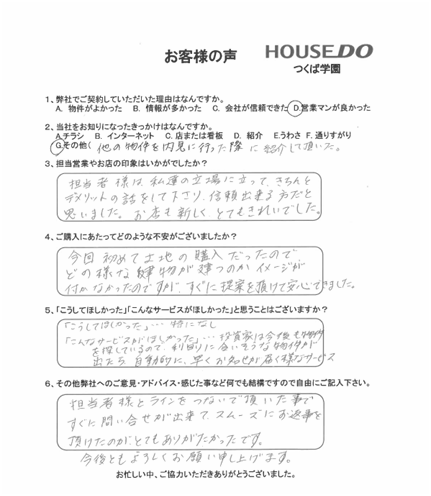 お客様の声
HOUSEDO
つくば学園
1、弊社でご契約していただいた理由はなんですか。
A. 物件がよかった B. 情報が多かった C. 会社が信頼できた D.営業マンが良かった
2、当社をお知りになったきっかけはなんですか。
A.チラシ B. インターネット C. 店または看板 D. 紹介 E.うわさ F. 通りすがり
G.その他( 他の物件を内見に行った際に紹介して頂いた。
3、担当営業やお店の印象はいかがでしたか？
担当者様は、私達の立場に立って、きちんと
デメリットの話をして下さり、信頼出来る方だと
思いました。お店も新しくとてもきれいでした。
4、ご購入にあたってどのような不安がございましたか？
今回初めて土地の購入だったので、
どの様な建物が建つのかイメージが
付かなかったのですが、すぐに提案を頂けて安心できました。
5、「こうしてほしかった」「こんなサービスがほしかった」と思うことはございますか？
「こうしてほしかった」… 特になし
「こんなサービスがほしかった」… 投資家は今後も物件
を探しているので、利回りに合いそうな物件が
出たら自動的に、早くお知らせが届く様なサービス
6、その他弊社へのご意見・アドバイス・感じた事など何でも結構ですので自由にご記入下さい。
担当者様とラインをつないで頂いた事で
すぐに問い合せが出来て、スムーズにお返事を
頂けたのがとてもありがたかったです。
今後ともよろしくお願い申し上げます。
お忙しい中、ご協力いただきありがとうございました。